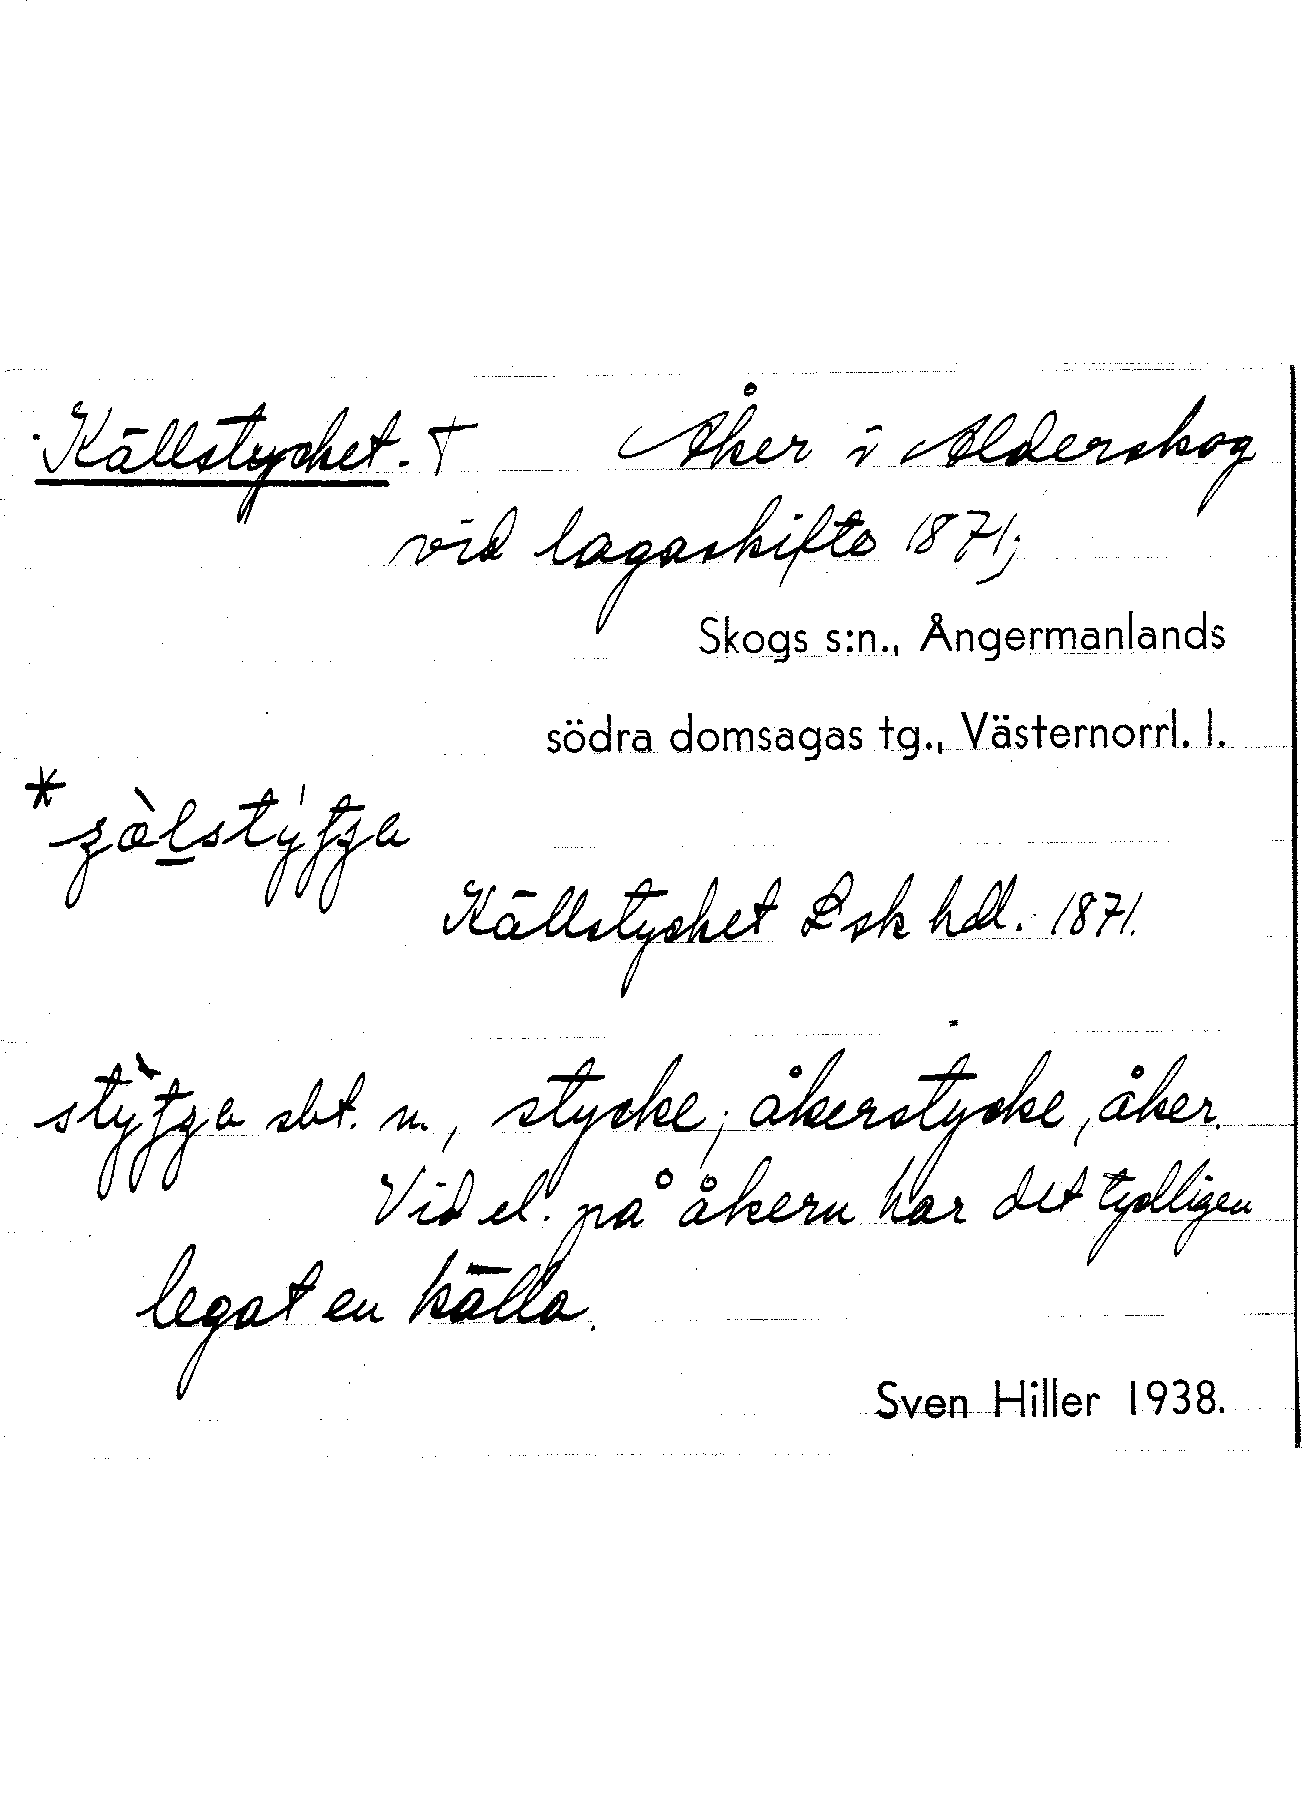 Källstycket. † Åker i Alderskog
vid lagaskifte 1871;
Skogs s:n., Ångermanlands
södra domsagas tg., Västernorrl. l.
Källstycket Lsk hdl. 1871.
sbt. n., stycke; åkerstycke, åker.
Vid el. på åkern har det tydligen
legat en källa.
Sven Hiller 1938.